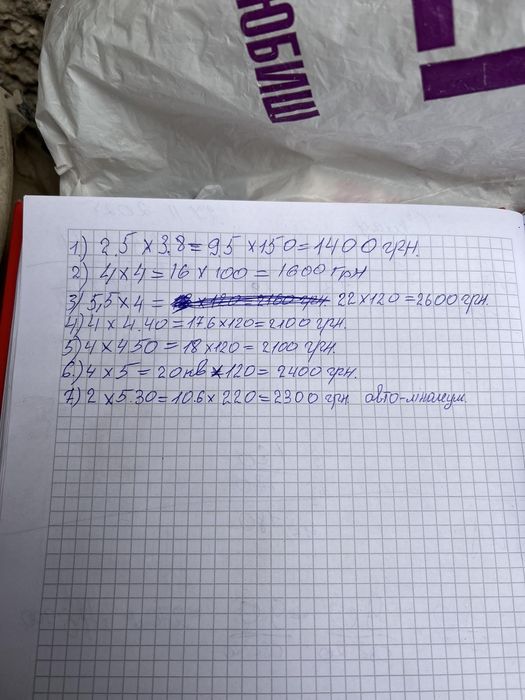 ЮБИШ
1) 2,5 × 3,8 = 9,5 × 150 = 1400 грн.
2) 4 × 4 = 16 × 100 = 1600 грн
3) 5,5 × 4 = 22 × 120 = 2600 грн.
4) 4 × 4.40 = 17.6 × 120 = 2100 грн.
5) 4 × 4.50 = 18 × 120 = 2100 грн.
6.) 4 × 5 = 20 кв × 120 = 2400 грн.
7.) 2 × 5.30 = 10.6 × 220 = 2300 грн авто-линолеум.